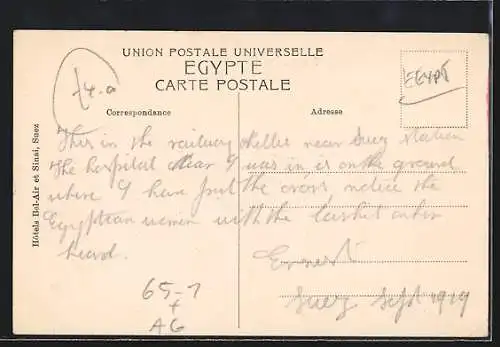 UNION POSTALE UNIVERSELLE
EGYPTE
CARTE POSTALE
EGYPT
Correspondance
Adresse
Hôtels Bel-Air et Sinai, Suez
This is the railway near Suez Station
The hospital I was in is on the ground
where I have put the cross notice the
Egyptian women with the basket on her
head.
Ernest
Suez Sept 1919
65-1
+
AG